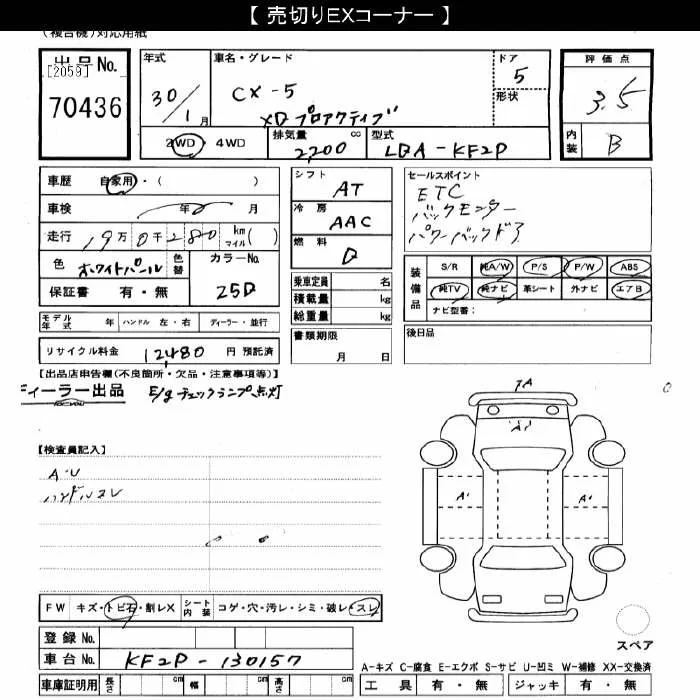 【 売切りEXコーナー 】
(複合機)対応用紙
出品No. 年式 車名・グレード ドア 評価点
[2059] 30/1月 CX-5 5 3.5
70436 XDプロアクティブ 形状
2WD・4WD 排気量 cc 型式 内装 B
2,200 LDA-KF2P
車歴 自家用・( ) シフト AT セールスポイント
車検 年 月 冷房 AAC ETC
走行 19万0千280 km マイル ( ) 燃料 D バックモニター
色 ホワイトパール 色替 カラーNo. パワーバックドア
保証書 有・無 25D 乗車定員 名 装備品 S/R 純A/W P/S P/W ABS
積載量 kg 純TV 純ナビ 革シート 外ナビ エアB
総重量 kg ナビ型番:
モデル年式 年 ハンドル 左・右 ディーラー・並行 書類期限 後日品
リサイクル料金 12,480 円 預託済 月 日
【出品店申告欄(不良箇所・欠品・注意事項等)】
ディーラー出品 E/gチェックランプ点灯
【検査員記入】
A・U
ハンドルスレ
A
A1
A1 A1
FW キズ・トビ石・割レX シート内装 コゲ・穴・汚レ・シミ・破レ・スレ
登録No.
車台No. KF2P-130157
スペア
A-キズ C-腐食 E-エクボ S-サビ U-凹ミ W-補修 XX-交換済
車庫証明用 長さ cm 幅 cm 高さ cm 工具 有・無 ジャッキ 有・無